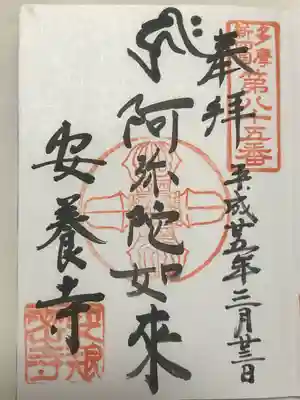 多摩
新四國
第八十五番
奉拝
平成廿五年三月廿三日
阿弥陀如來
安養寺